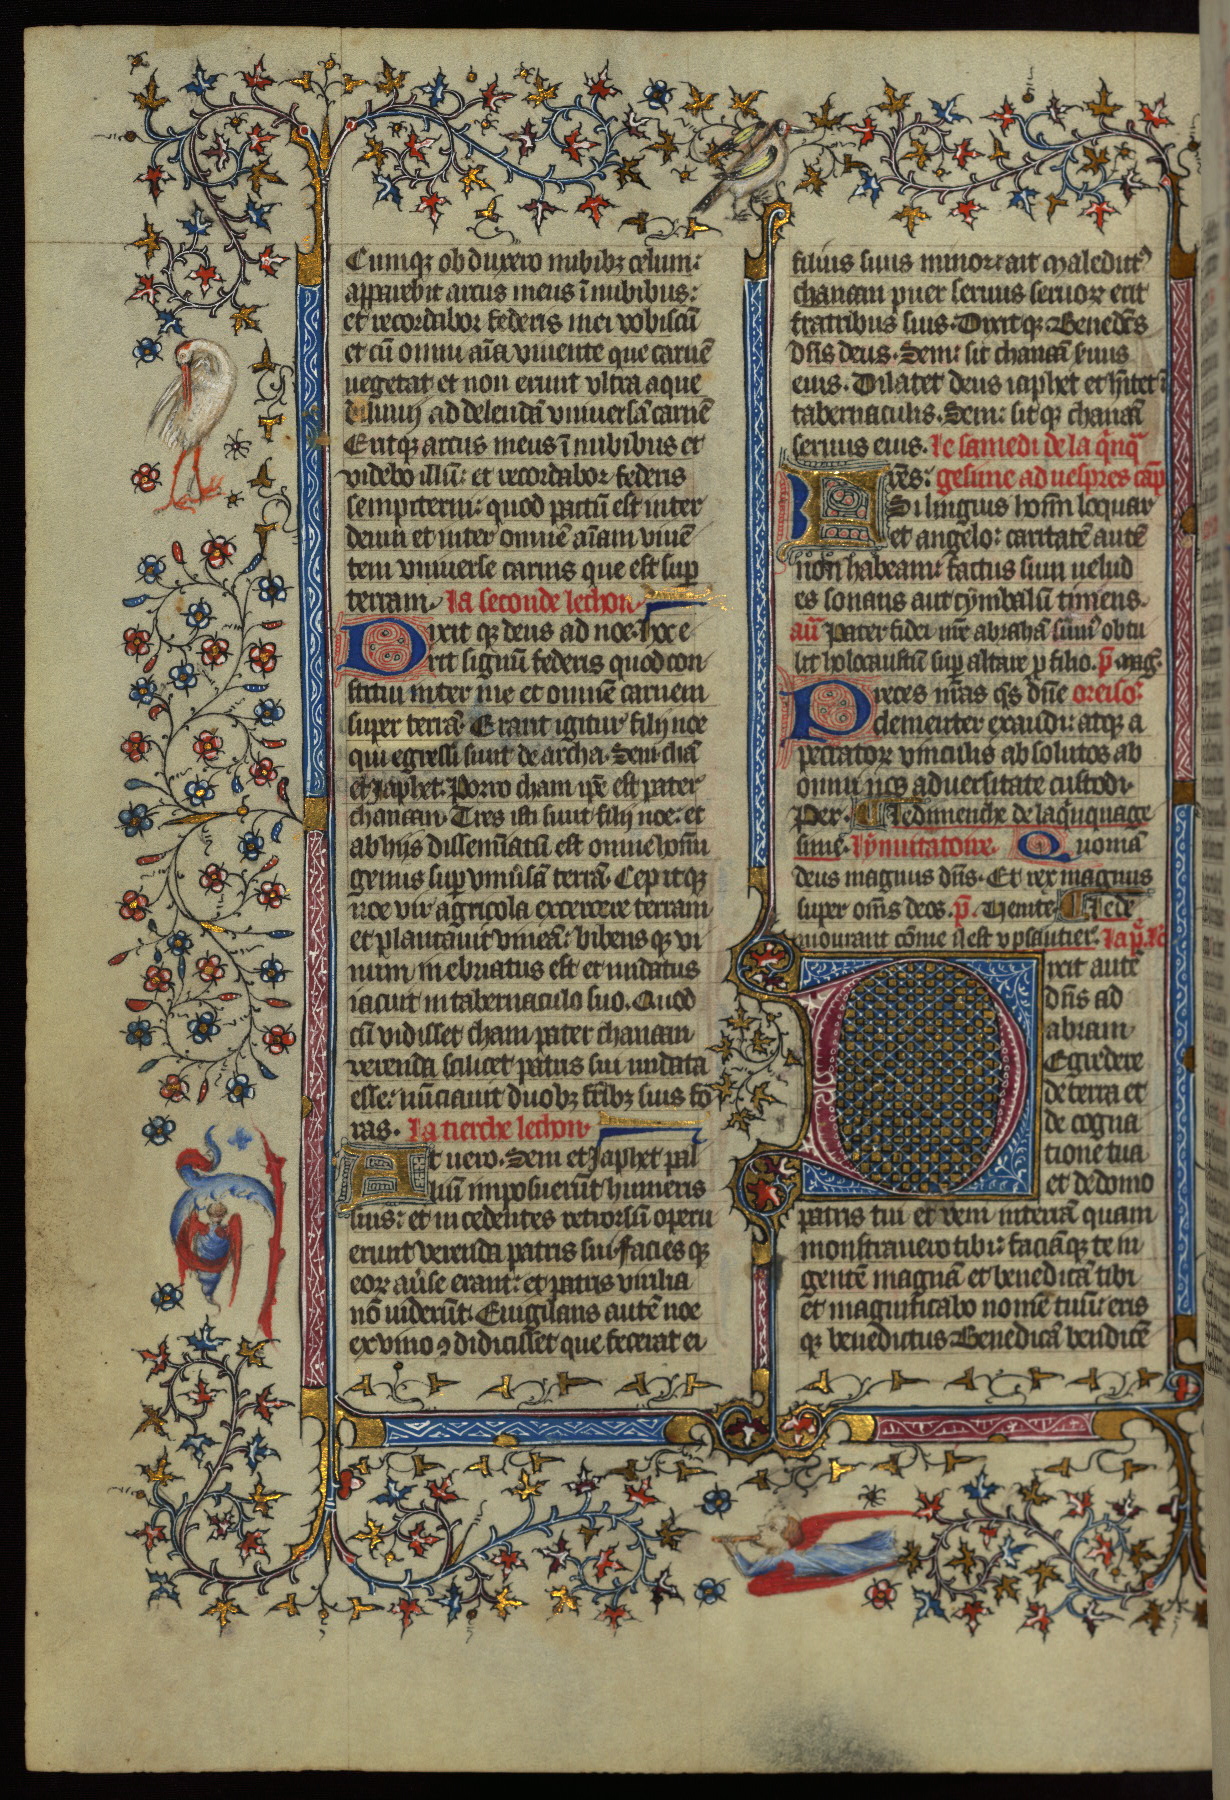 Cumqꝫ obduxero nubibꝫ celum:
apparebit arcus meus ī nubibus:
et recordabor federis mei vobiscū
et cū omni aīa viuente que carnē
uegetat et non erunt vltra aque
diluuij ad delendā vniuersā carnē
Eritqꝫ arcus meus ī nubibus et
videbo illū: et recordabor federis
sempiterni: quod pactū est inter
deum et inter omnē aīam viuē
tem vniuerse carnis que est sup
terram. la seconde lechon.
Dixit qꝫ deus ad noe. hoc e
rit signū federis quod con
stitui inter me et omnē carnem
super terrā. Erant igitur filij noe
qui egressi sunt de archa. Sem chā
et Japhet. Porro cham ip̄e est pater
chanaan. Tres isti sunt filij noe: et
ab hijs dissemīatū est omne hoīm
genus sup vniūsā terrā. Cepitqꝫ
noe vir agricola excercere terram
et plantauit vineā: bibens qꝫ vi
num inebriatus est et nudatus
iacuit in tabernaculo suo. Quod
cū vidisset cham pater chanaan
verenda scilicet patris sui nudata
esse: nūciauit duobꝫ frībꝫ suis fo
ras. la tierche lechon.
At uero. Sem et Japhet pal
liū imposuerūt humeris
suis: et incedentes retrorsū operu
erunt verenda patris sui. facies qꝫ
eoꝝ aūse erant: et patris virilia
nō uiderūt. Euigilans autē noe
ex vino ꝯ didicisset que fecerat ei
filius suus minor: ait Maledict᾽
chanaan puer seruus seruoꝝ erit
fratribus suis. Dixit qꝫ Benedc̄s
dn̄s deus. Sem: sit chanaā suus
eius. Dilatet deus iaphet et h̄itet ī
tabernaculis. Sem: sit qꝫ chanaā
seruus eius. le samedi de la q̄nq̄
gesime ad uespres cap̄
Si linguis hoīm loquar
et angelo: caritatē autē
non habeam: factus sum uelud
es sonans aut cymbalū tiniens.
añ Pater fidei nr̄e abrahā sūm᾽ obtu
lit holocaustū sup altare ꝓ filio. p̄. mag̃.
Preces nr̄as qs̄ dn̄e oreiso:
clementer exaudi: atqꝫ a
peccatoꝝ vinculis absolutos ab
omni nos aduersitate custodi.
Per. le dimenche de la q̄nquage
sime. Iṽnuitatoire. Quoniā
deus magnus dn̄s. Et rex magnus
super om̄s deos. p̄. Uenite. le de
mourant cōme il est v psaultier. la p̄. le
Dixit autē
dn̄s ad
abram.
Egredere
de terra et
de cogna
tione tua
et de domo
patris tui et veni in terrā quam
monstrauero tibi: faciāqꝫ te in
gentē magnā et benedicā tibi
et magnificabo nomē tuū: eris
qꝫ benedictus Benedicā bendicē